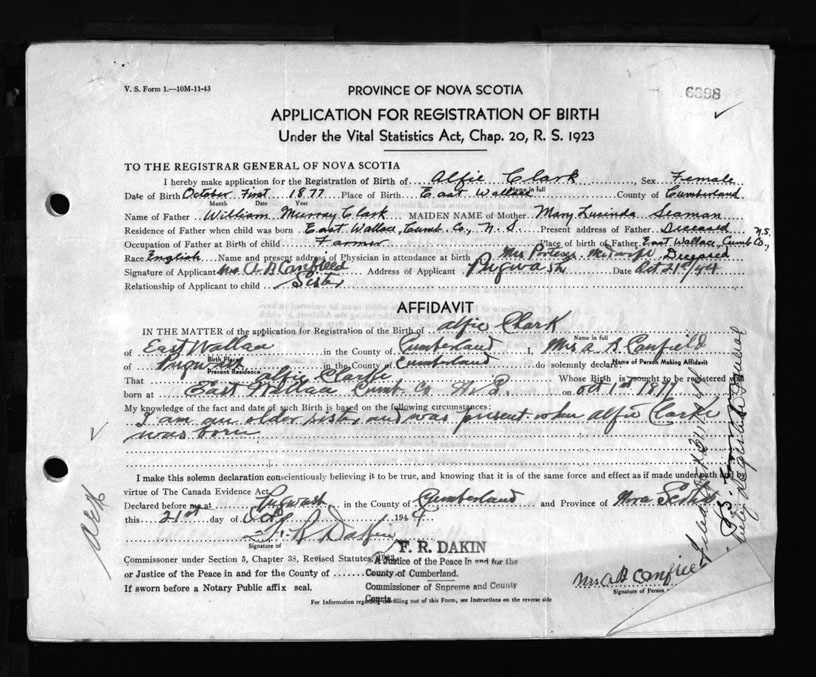 V. S. Form 1.—10M-11-43
PROVINCE OF NOVA SCOTIA
6398
APPLICATION FOR REGISTRATION OF BIRTH
Under the Vital Statistics Act, Chap. 20, R. S. 1923
TO THE REGISTRAR GENERAL OF NOVA SCOTIA
I hereby make application for the Registration of Birth of Alfie Clark Sex Female
Name in full
Date of Birth October First 1877 Place of Birth East Wallace County of Cumberland
Month Date Year
Name of Father William Murray Clark MAIDEN NAME of Mother Mary Lucinda Seaman
Residence of Father when child was born East Wallace, Cumb. Co., N. S. Present address of Father Deceased
Occupation of Father at Birth of child Farmer Place of Birth of Father East Wallace, Cumb Co, N.S.
Race English Name and present address of Physician in attendance at birth Mrs Midwife Deceased
Signature of Applicant Mrs. A B Canfield Address of Applicant Pugwash Date Oct 21st/44
Relationship of Applicant to child Sister
AFFIDAVIT
IN THE MATTER of the application for Registration of the Birth of Alfie Clark
Name in full
of East Wallace in the County of Cumberland I, Mrs A B Canfield
Birth Place Name of Person Making Affidavit
of Pugwash in the County of Cumberland do solemnly declare:
Present Residence
That Alfie Clarke Whose Birth is sought to be registered was
born at East Wallace Cumb. Co N.S. on Oct 1st 1877
My knowledge of the fact and date of such Birth is based on the following circumstances:
I am an older sister and was present when Alfie Clarke
was born
I make this solemn declaration conscientiously believing it to be true, and knowing that it is of the same force and effect as if made under oath and by
virtue of The Canada Evidence Act.
Declared before me at Pugwash in the County of Cumberland and Province of Nova Scotia
this 21st day of Oct 1944
F. R. Dakin
Signature of
F. R. DAKIN
Commissioner under Section 5, Chapter 38, Revised Statutes, 1923
A Justice of the Peace in and for the
or Justice of the Peace in and for the County of
County of Cumberland.
If sworn before a Notary Public affix seal.
Commissioner of Supreme and County
Courts
Mrs A B Canfield
Signature of Person
For Information regarding filling out of this Form, see Instructions on the reverse side